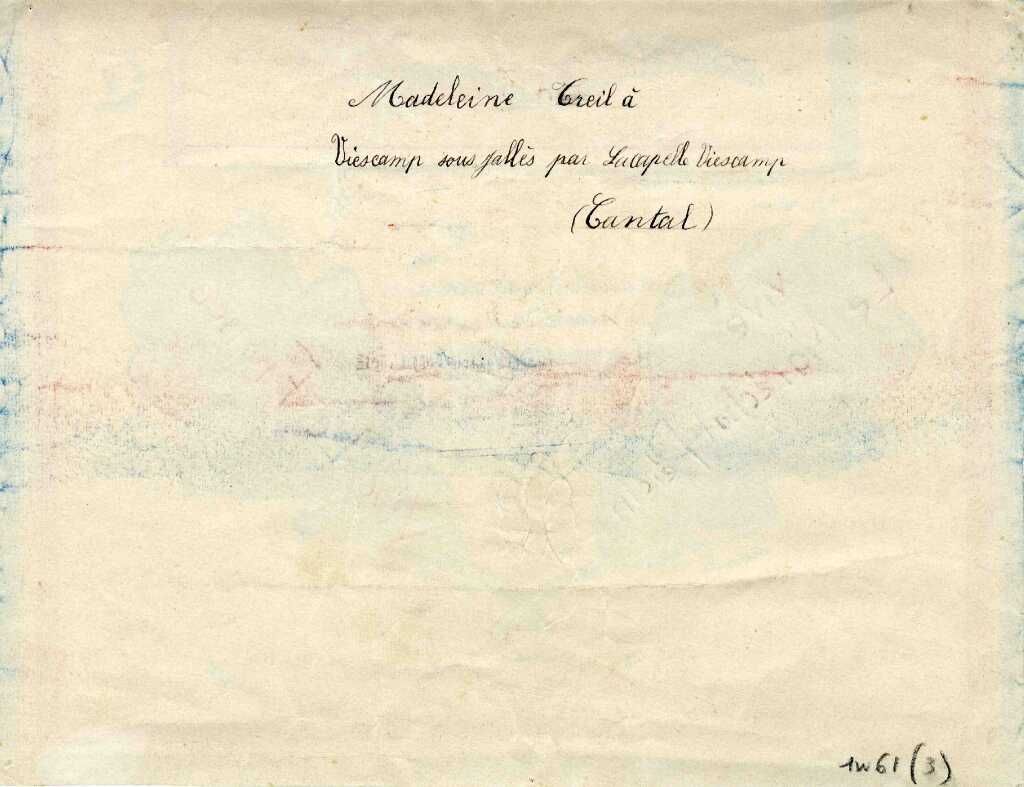 Madeleine Treil à
Viescamp sous Jallès par Lacapelle Viescamp
(Cantal)
1W61 (3)